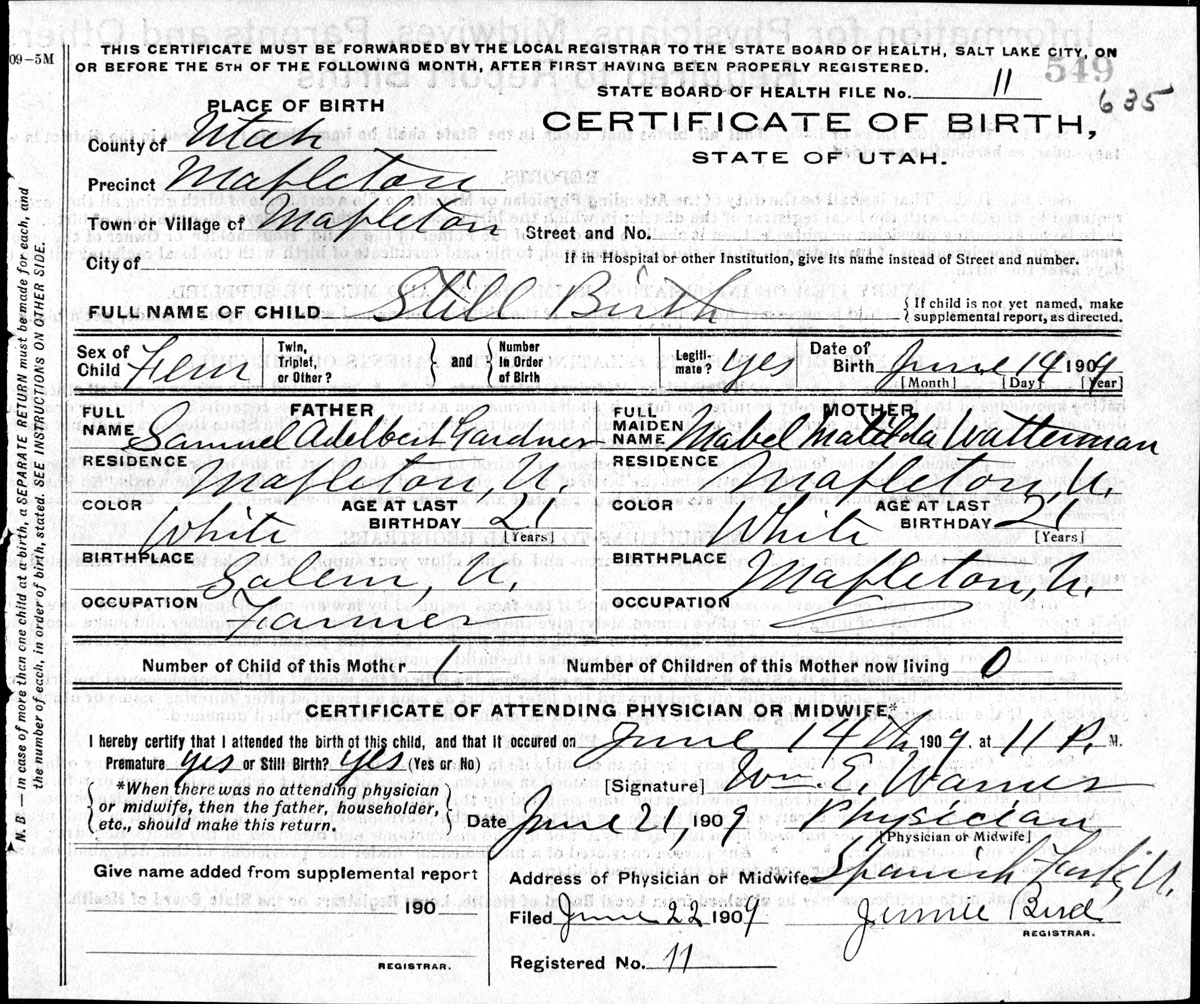 09–5M
THIS CERTIFICATE MUST BE FORWARDED BY THE LOCAL REGISTRAR TO THE STATE BOARD OF HEALTH, SALT LAKE CITY, ON
OR BEFORE THE 5TH OF THE FOLLOWING MONTH, AFTER FIRST HAVING BEEN PROPERLY REGISTERED.
549
STATE BOARD OF HEALTH FILE No. 11
635
PLACE OF BIRTH
CERTIFICATE OF BIRTH,
STATE OF UTAH.
County of Utah
Precinct Mapleton
Town or Village of Mapleton Street and No.
City of If in Hospital or other Institution, give its name instead of Street and number.
FULL NAME OF CHILD Still Birth {If child is not yet named, make supplemental report, as directed.
Sex of Child Fem Twin, Triplet, or Other? } and { Number in Order of Birth Legiti-mate? yes Date of Birth June 14 1909
[Month] [Day] [Year]
FATHER
FULL NAME Samuel Adelbert Gardner
RESIDENCE Mapleton, U.
COLOR White AGE AT LAST BIRTHDAY 21 [Years]
BIRTHPLACE Salem, U.
OCCUPATION Farmer
MOTHER
FULL MAIDEN NAME Mabel Matilda Watterman
RESIDENCE Mapleton, U.
COLOR White AGE AT LAST BIRTHDAY 21 [Years]
BIRTHPLACE Mapleton, U.
OCCUPATION
Number of Child of this Mother 1 Number of Children of this Mother now living 0
CERTIFICATE OF ATTENDING PHYSICIAN OR MIDWIFE*
I hereby certify that I attended the birth of this child, and that it occured on June 14th, 1909, at 11 P. M.
Premature yes or Still Birth? yes (Yes or No)
[Signature] Wm. E. Warner
{*When there was no attending physician or midwife, then the father, householder, etc., should make this return.}
Date June 1909 Physician
[Physician or Midwife]
Give name added from supplemental report
190
REGISTRAR.
Address of Physician or Midwife Spanish Fork, U.
Filed June 22 1909 Jennie Bird
REGISTRAR.
Registered No. 11
N. B.—In case of more than one child at a birth, a SEPARATE RETURN must be made for each, and
the number of each, in order of birth, stated. SEE INSTRUCTIONS ON OTHER SIDE.